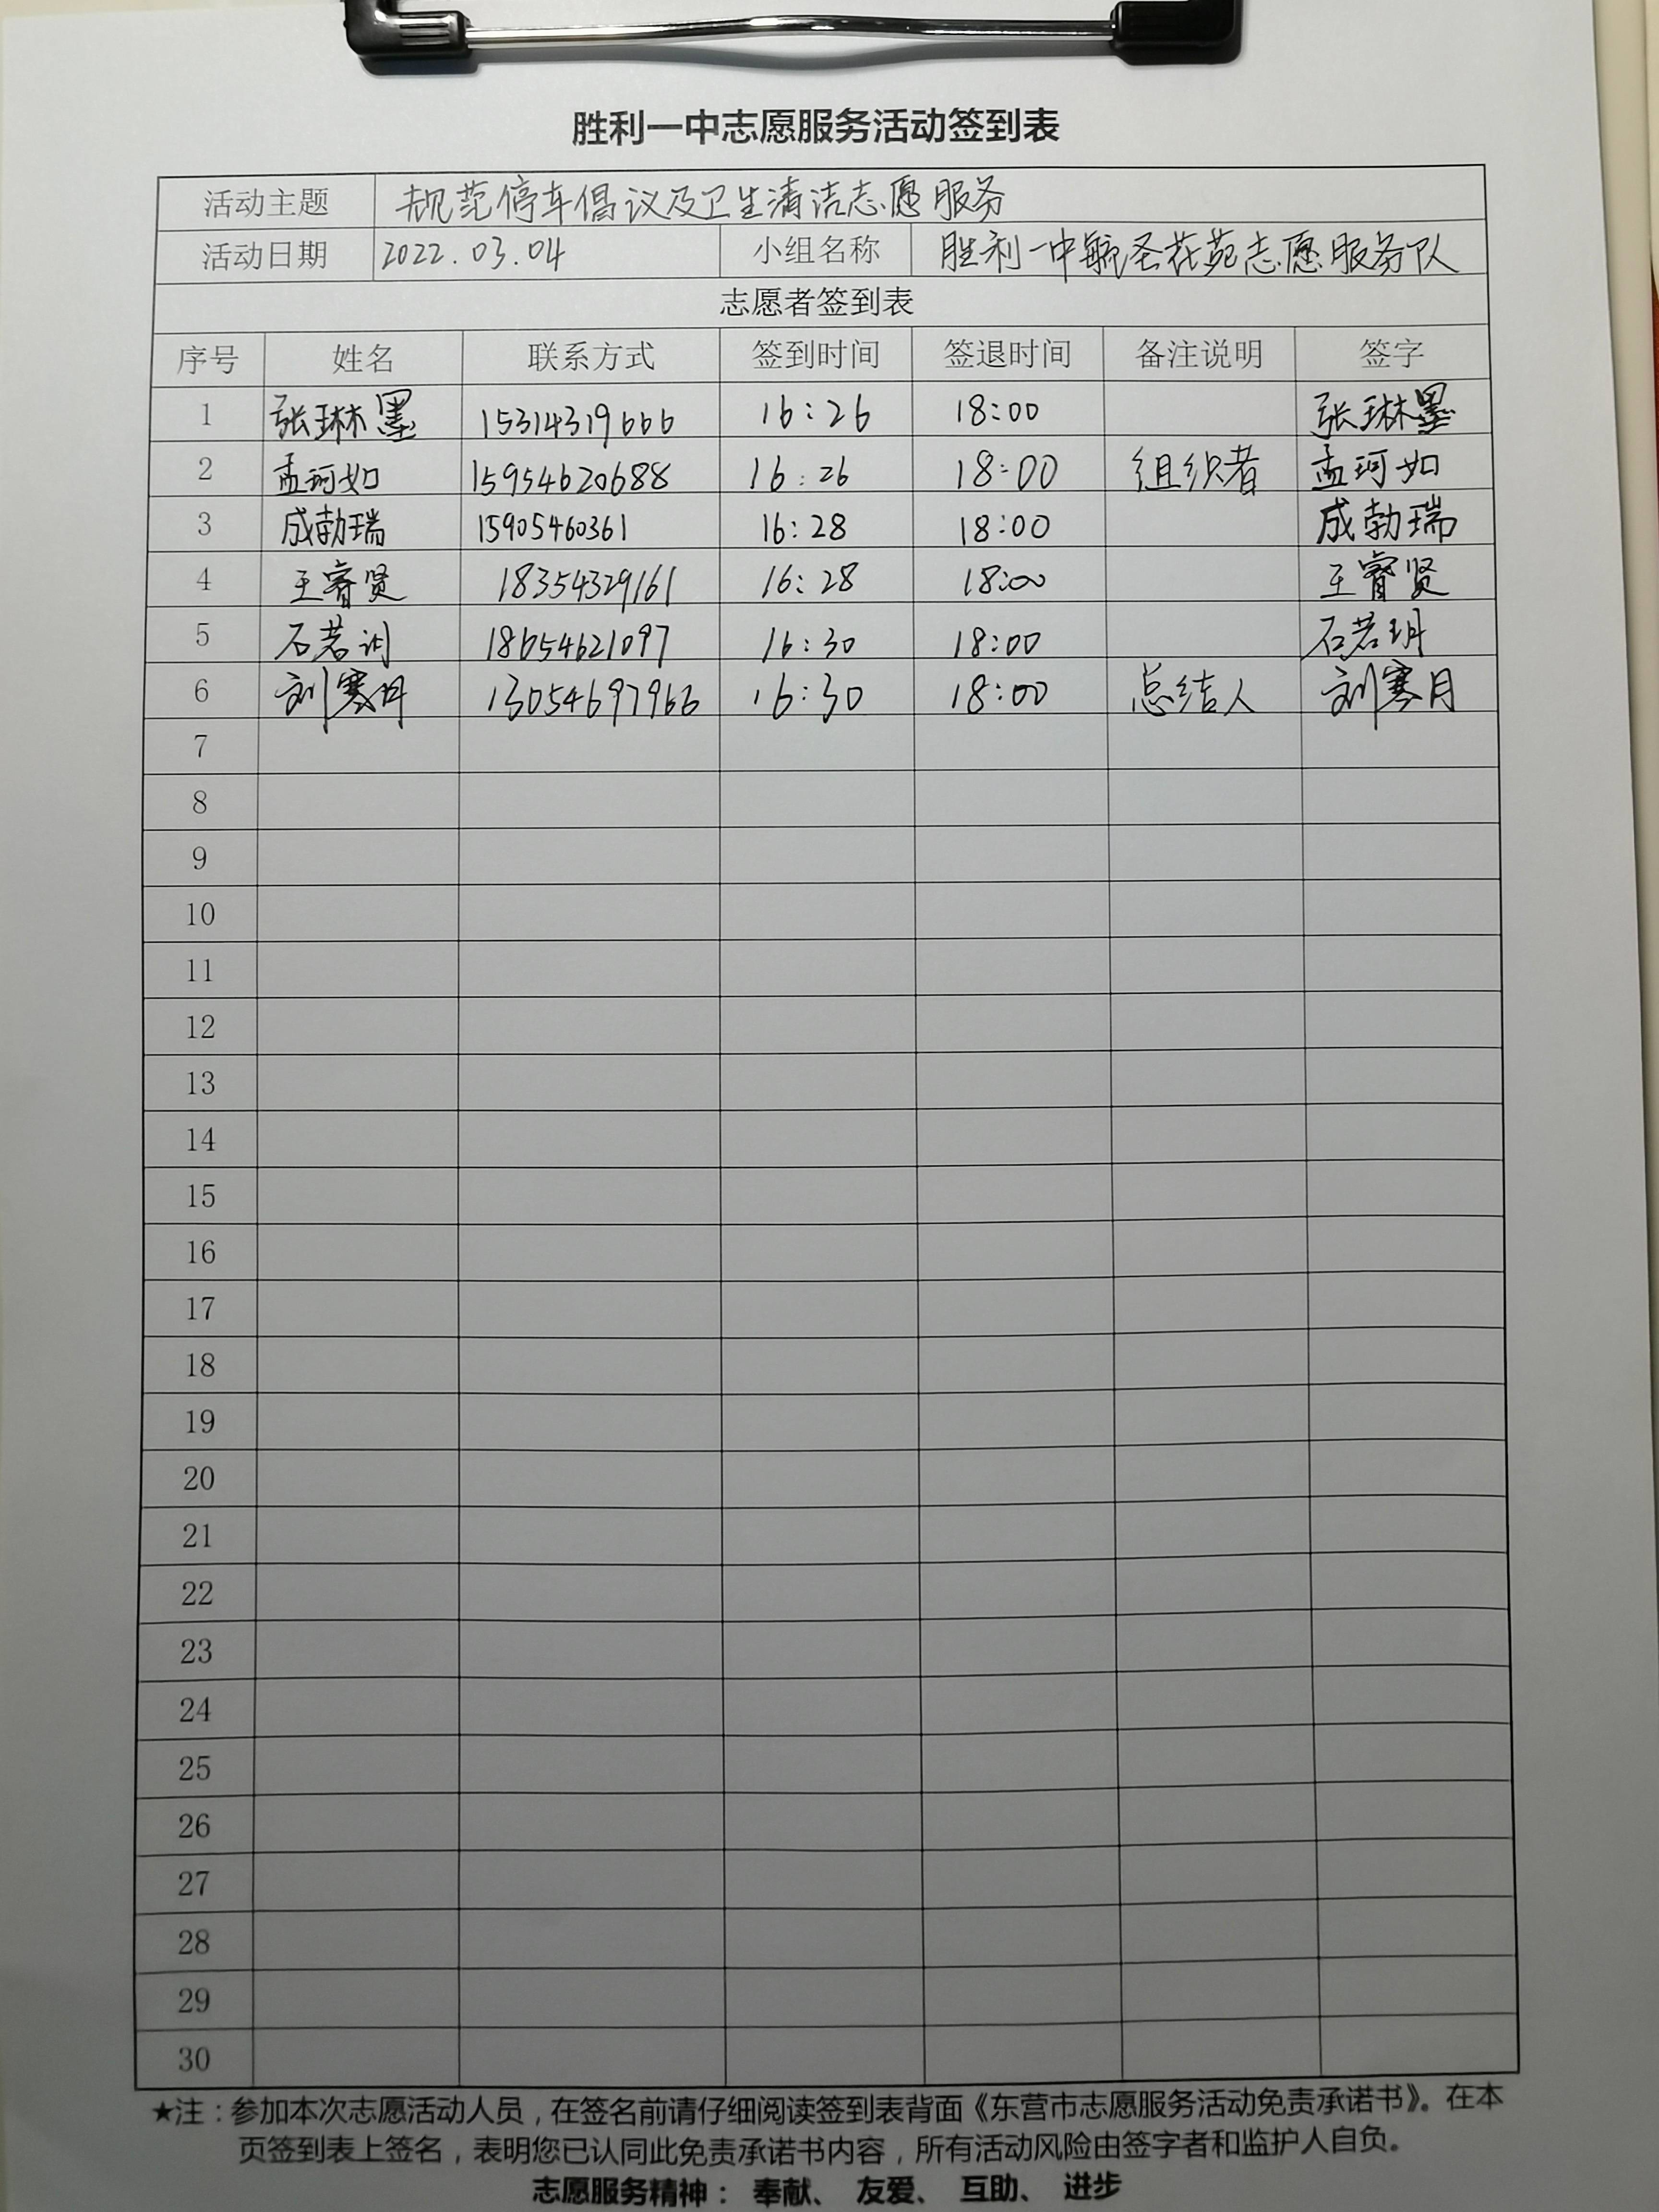 胜利一中志愿服务活动签到表
活动主题 规范停车倡议及卫生清洁志愿服务
活动日期 2022.03.04 小组名称 胜利一中毓圣花苑志愿服务队
志愿者签到表
序号 姓名 联系方式 签到时间 签退时间 备注说明 签字
1 张琳墨 15314319666 16:26 18:00 张琳墨
2 孟珂如 15954620688 16:26 18:00 组织者 孟珂如
3 成勃瑞 15905460361 16:28 18:00 成勃瑞
4 王睿贤 18354329161 16:28 18:00 王睿贤
5 石若玥 18654621097 16:30 18:00 石若玥
6 刘寒月 13054697966 16:30 18:00 总结人 刘寒月
7
8
9
10
11
12
13
14
15
16
17
18
19
20
21
22
23
24
25
26
27
28
29
30
★注：参加本次志愿活动人员，在签名前请仔细阅读签到表背面《东营市志愿服务活动免责承诺书》。在本
页签到表上签名，表明您已认同此免责承诺书内容，所有活动风险由签字者和监护人自负。
志愿服务精神： 奉献、 友爱、 互助、 进步